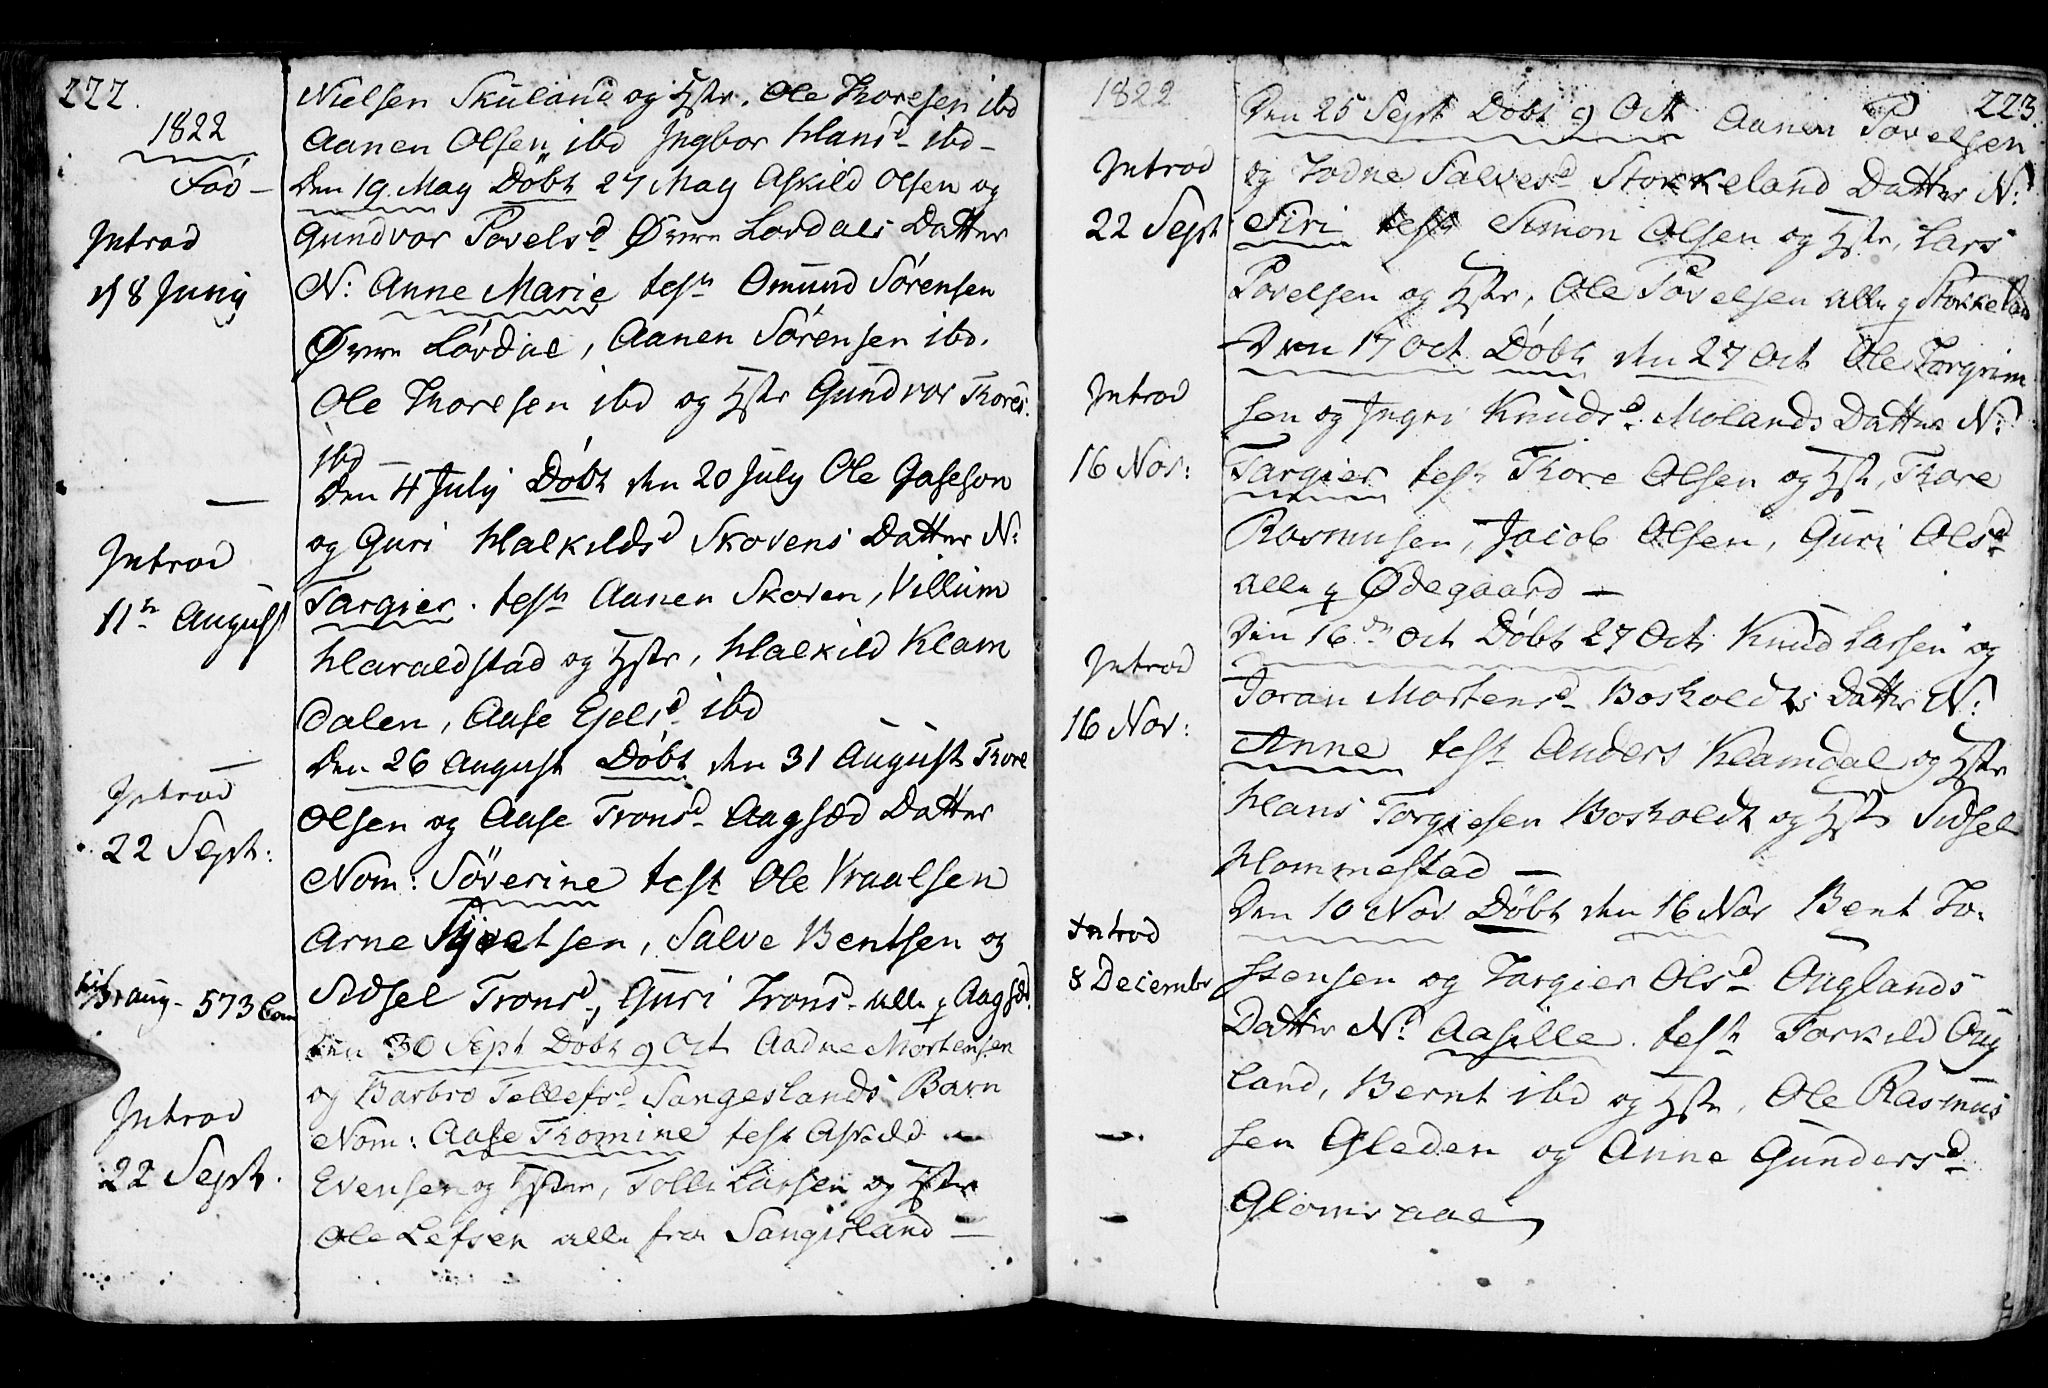 222.
1822
Fød –
Introd
d 8 Junij
Introd
11te August
Introd
22 Sept:
Aug – 573 Com
Introd
22 Sept.
Nielsen Skuland og Hstr. Ole Thoresen ibd
Aanen Olsen ibd Ingbor Hansd ibd –
Den 19 May Døbt 27 May Askild Olsen og
Gundvor Povelsd Øvre Lordals Datter
N: Anne Marie test Omund Sørensen
Øvre Lørdal, Aanen Sørensen ibd.
Ole Thoresen ibd og Hstr Gundvor Thores.
ibd –
Den 4 July Døbt den 20 July Ole Gaseson
og Guri Halkildsd Skovens Datter N:
Targier. test Aanen Skoven, Villum
Haraldstad og Hstr, Halkild Klam
dalen, Aase Ejelsd ibd
Den 26 August Døbt den 31 August Thore
Olsen og Aase Tronsd Aagsød Datter
Nom: Söverine test Ole Vraalsen
Arne Syvertsen, Salve Bentsen og
Sidsel Tronsd, Guri Tronsd alle p Aagsød
Den 30 Sept Døbt 9 Oct Aadne Mortensen
og Barbro Tellefsd Sangeslands Barn
Nom: Aase Thomine test Askild
Evensen og Hstr, Tolle Larsen og Hstr
Ole Lefsen alle fra Sangesland –
1822
223.
Introd
22 Sept
Introd
16 Nov:
Introd
16 Nov:
Introd
8 Decembr
Den 25 Sept Døbt 9 Oct Aanen Povelsen
og Todne Salvesd Stokkeland Datter N:
Siri test Simon Olsen og Hstr, Lars
Povelsen og Hstr, Ole Povelsen alle p Stokkeland
Den 17 Oct Døbt den 27 Oct Ole Torgrim
sen og Ingri Knudsd Molands Datter N:
Targier test Thore Olsen og Hstr, Thore
Rasmusen, Jacob Olsen, Guri Olsd
alle p Ødegaard –
Den 16de Oct Døbt 27 Oct Knud Larsen og
Joran Mortensd Bosholdts Datter N:
Anne test Anders Klamdal og Hstr
Hans Torgiesen Bosholdt og Hstr Sidsel
Hommestad –
Den 10 Nov Døbt den 16 Nov Bent To-
stensen og Targier Olsd Ouglands
Datter N: Aasille. test Torkild Oug
land, Bernt ibd og Hstr, Ole Rasmus
sen Gleden og Anne Gundersd
Glomsaae